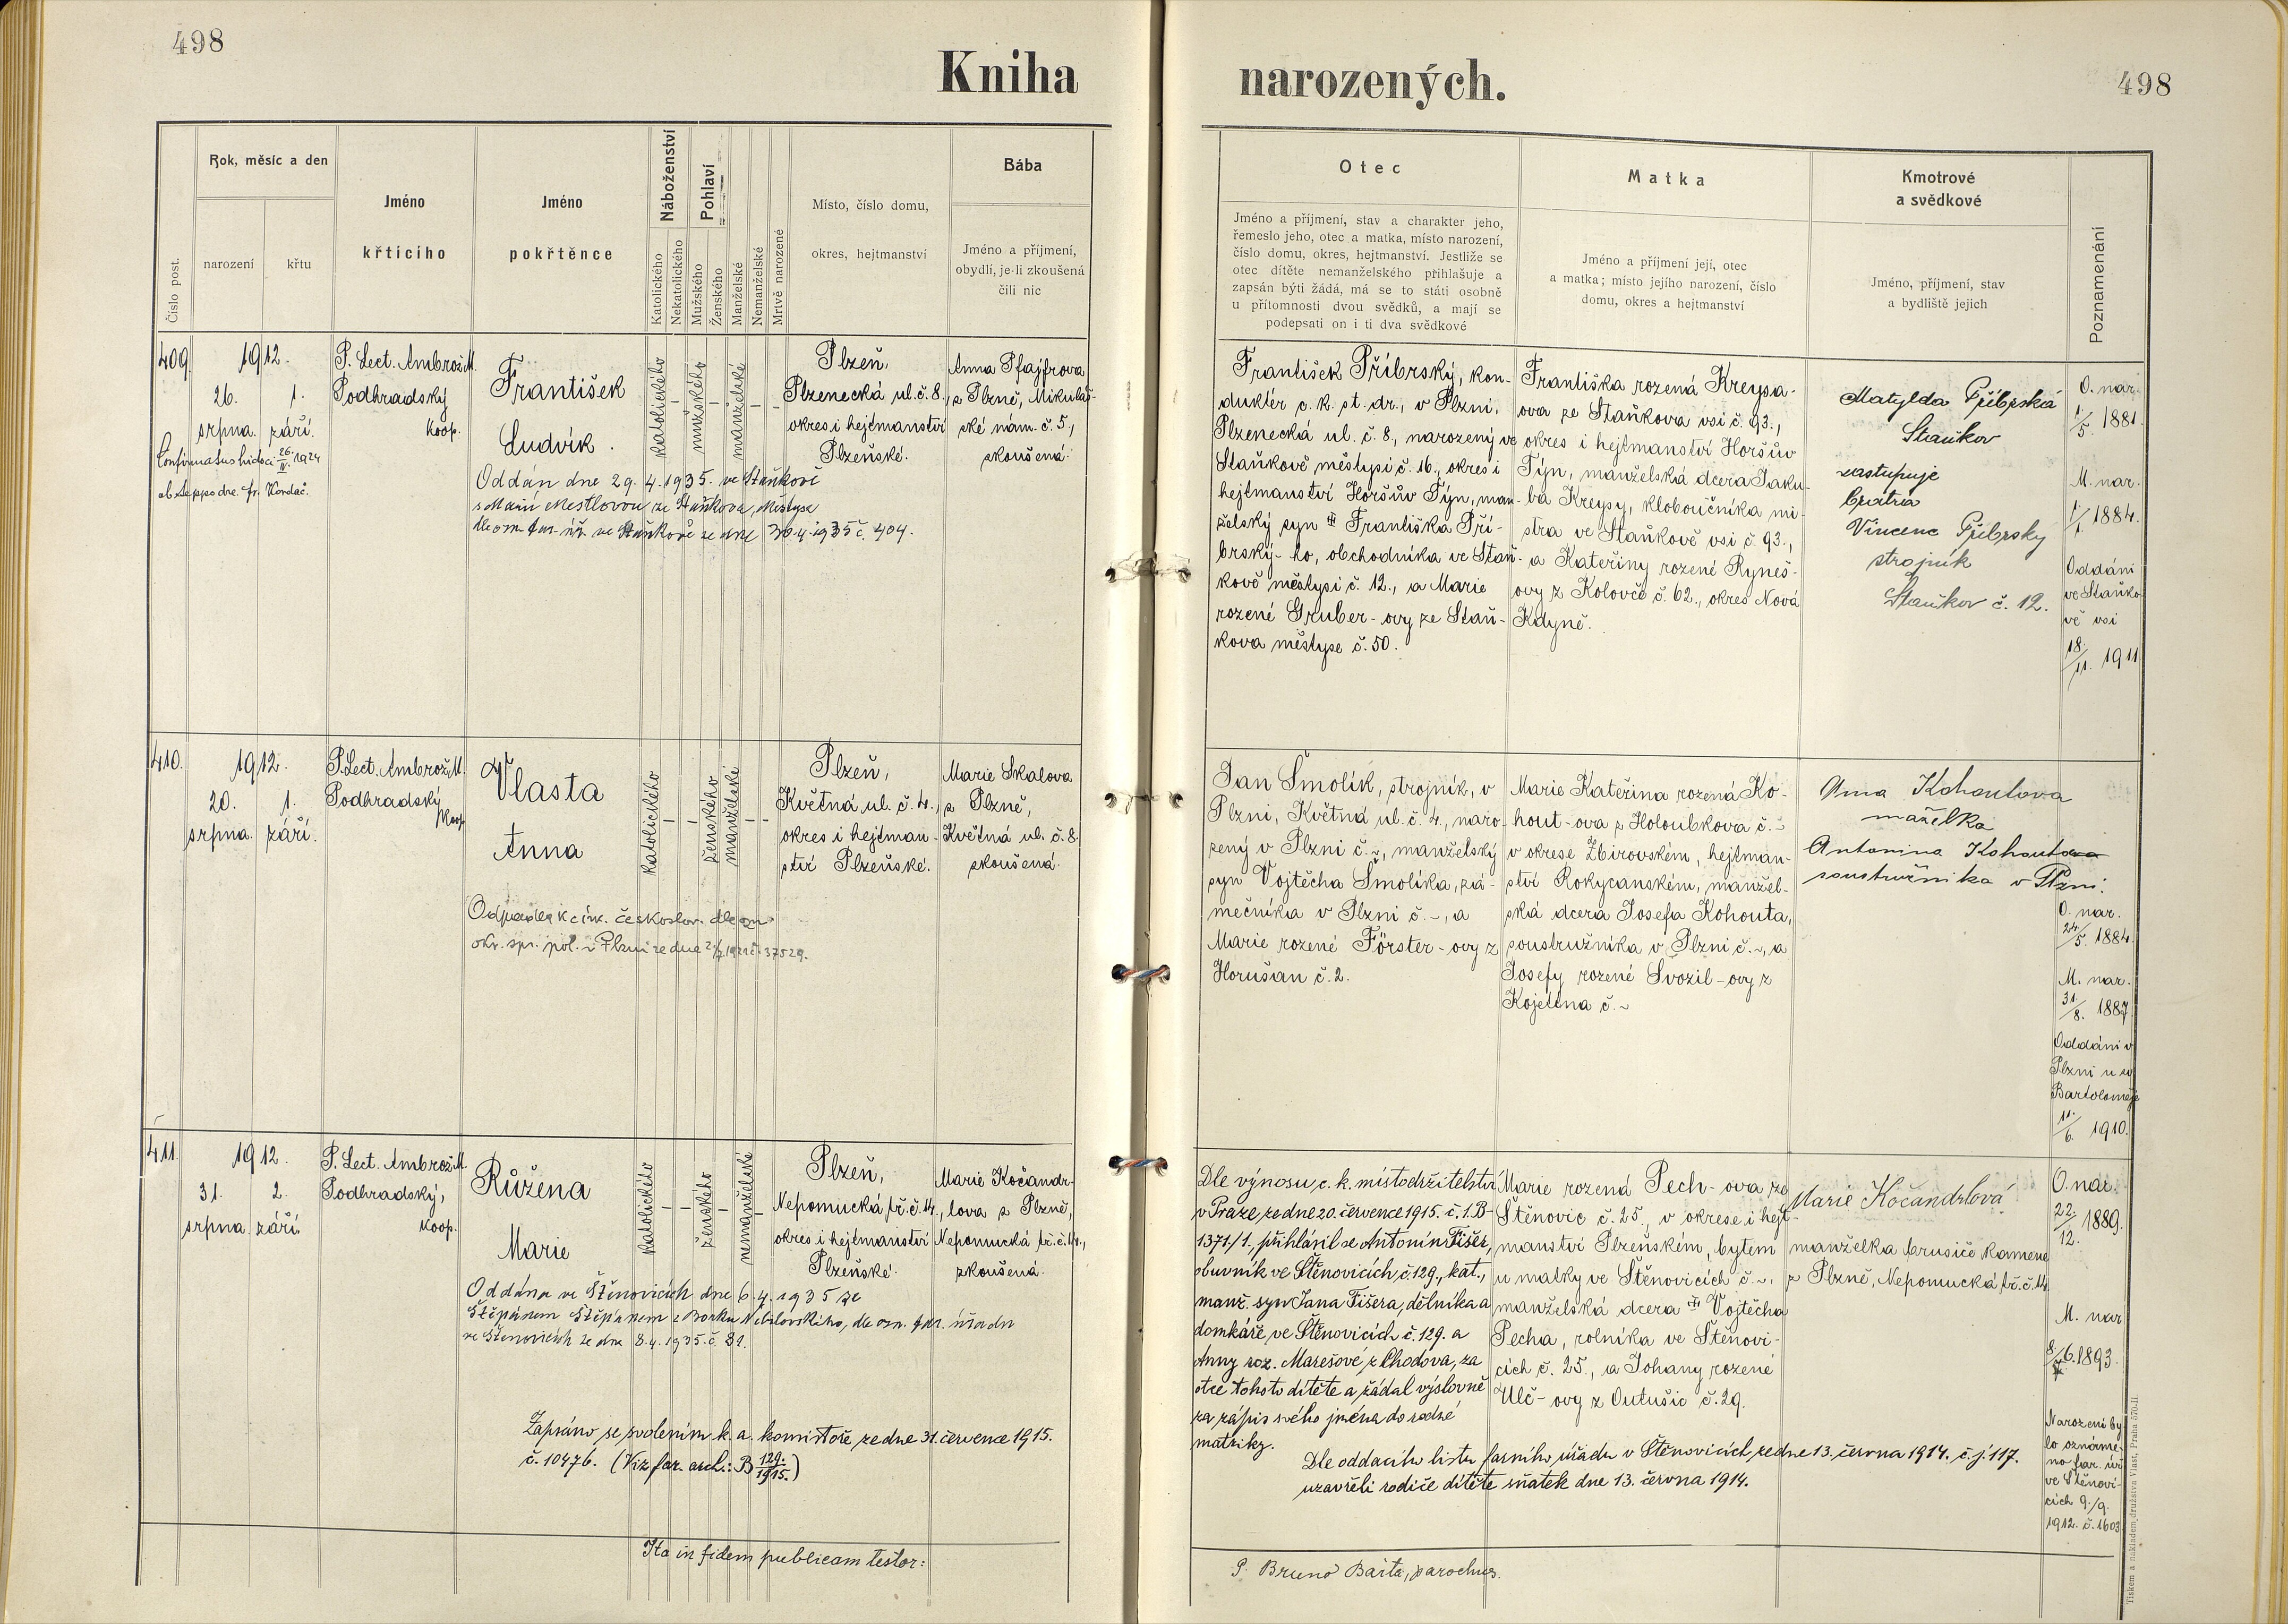 498
Kniha
narozených.
498
Číslo post.
Rok, měsíc a den
narození
křtu
Jméno
křticího
Jméno
pokřtěnce
Náboženství
Katolického
Nekatolického
Pohlaví
Mužského
Ženského
Manželské
Nemanželské
Mrtvě narozené
Místo, číslo domu,
okres, hejtmanství
Bába
Jméno a příjmení,
obydlí, je-li zkoušená
čili nic
Otec
Jméno a příjmení, stav a charakter jeho,
řemeslo jeho, otec a matka, místo narození,
číslo domu, okres, hejtmanství. Jestliže se
otec dítěte nemanželského přihlašuje a
zapsán býti žádá, má se to státi osobně
u přítomnosti dvou svědků, a mají se
podepsati on i ti dva svědkové
Matka
Jméno a příjmení její, otec
a matka; místo jejího narození, číslo
domu, okres a hejtmanství
Kmotrové
a svědkové
Jméno, příjmení, stav
a bydliště jejich
Poznamenání
409.
1912.
26.
srpna.
1.
září.
P. Lect. Ambrož M.
Podhradský
koop.
František
Ludvík.
katolického
mužského
manželské
Plzeň,
Plzenecká ul. č. 8.,
okres i hejtmanství
Plzeňské.
Anna Pfajfrova
z Plzně, Mikuláš-
ské nám. č. 5.,
zkoušená.
Oddán dne 29. 4. 1935. ve Staňkově
s Marií Mestlovou ze Staňkova, Městyse
ve Staňkově ze dne 30.4.1935 č. 404.
František Příbrský, kon-
duktér c. k. st. dr., v Plzni,
Plzenecká ul. č. 8., narozený ve
Staňkově městysi č. 16., okres i
hejtmanství Horšův Týn, man-
želský syn Františka Pří-
brský-ho, obchodníka ve Staň-
kově městysi č. 12., a Marie
rozené Gruber-ovy ze Staň-
kova městyse č. 50.
Františka rozená Kreysa-
ova ze Staňkova vsi č. 93.,
okres i hejtmanství Horšův
Týn, manželská dcera Jaku-
ba Kreysy, kloboučníka mi-
stra ve Staňkově vsi č. 93.,
a Kateřiny rozené Ryneš-
ovy z Kolovče č. 62., okres Nová
Kdyně.
Matylda Příbrská
Staňkov
zastupuje
bratra
Vincenc Příbrsky
strojník
Staňkov č. 12.
O. nar.
1/5. 1881.
M. nar.
1/1 1884.
Oddáni
ve Staňko-
vě vsi
18/11. 1911
410.
1912.
20.
srpna.
1.
září.
P. Lect. Ambrož M.
Podhradský
koop.
Vlasta
Anna
katolického
ženského
manželské
Plzeň,
Květná ul. č. 4.,
okres i hejtman-
ství Plzeňské.
Marie Skalova
z Plzně,
Květná ul. č. 8.
zkoušená.
Odpadla k círk. českoslov. dle ozn.
okr. spr. pol. v Plzni ze dne
Jan Smolík, strojník, v
Plzni, Květná ul. č. 4., naro-
zený v Plzni č. ~, manželský
syn Vojtěcha Smolíka, zá-
mečníka v Plzni č. ~, a
Marie rozené Förster-ovy z
Horušan č. 2.
Marie Kateřina rozená Ko-
hout-ova z Holoubkova č. ~
v okrese Zbirovském, hejtman-
ství Rokycanském, manžel-
ská dcera Josefa Kohouta,
soustružníka v Plzni č. ~, a
Josefy rozené Švozil-ovy z
Kojetína č. ~
Anna Kohoutova
mažélka
Antonina Kohouta
soustružníka v Plzni.
O. nar.
24/5. 1884.
M. nar.
31/8. 1887.
Oddáni v
Plzni u sv.
Bartoloměje
11./6. 1910.
411.
1912.
31.
srpna
2.
září.
P. Lect. Ambrož M.
Podhradský,
koop.
Růžena
Marie
katolického
ženského
nemanželské
Plzeň,
Nepomucká tř. č. 14.,
okres i hejtmanství
Plzeňské.
Marie Kočandr-
lova z Plzně,
Nepomucká tř. č. 14.,
zkoušená.
Oddána ve Štěnovicích dne 6. 4. 1935 se
Štěpánem Štěpánem z Borku Nebílovského, dle ozn. far. úřadu
ve Štěnovicích ze dne 8. 4. 1935. č. 81.
Zapsáno se svolením k. a. konsistoře, ze dne 31. července 1915.
č. 10476. (Viz far. arch.: B 129./1915.)
Dle výnosu c. k. místodržitelství
v Praze, ze dne 20. července 1915. č. 1. B-
1371/1., přihlásil se Antonín Fišer,
obuvník ve Štěnovicích, č. 129., kat.,
manž. syn Jana Fišera, dělníka a
domkáře, ve Štěnovicích č. 129. a
Anny roz. Marešové, z Chodova, za
otce tohoto dítěte a žádal výslovně
za zápis svého jména do rodné
matriky.
Marie rozená Pech-ova ze
Štěnovic č. 25., v okrese i hejt-
manství Plzeňském, bytem
u matky ve Štěnovicích č. ~.
manželská dcera Vojtěcha
Pecha, rolníka ve Štěnovi-
cích č. 25., a Johany rozené
Ulč-ovy z Outušic č. 29.
Marie Kočandrlová
manželka brusiče kamene
z Plzně, Nepomucká tř. č. 14.
O. nar.
22./12. 1889.
M. nar
6. 1893.
Narození by-
lo ozname-
no far. úř.
ve Štěnovi-
cích 9./9.
1912. č. 1603.
Dle oddacího listu farního úřadu v Štěnovicích, ze dne 13. června 1914. č. j. 117.
uzavřeli rodiče dítěte sňatek dne 13. června 1914.
Ita in fidem publicam testor:
P. Bruno Bárta, parochus.
Tiskem a nákladem družstva Vlast, Praha 570-II.